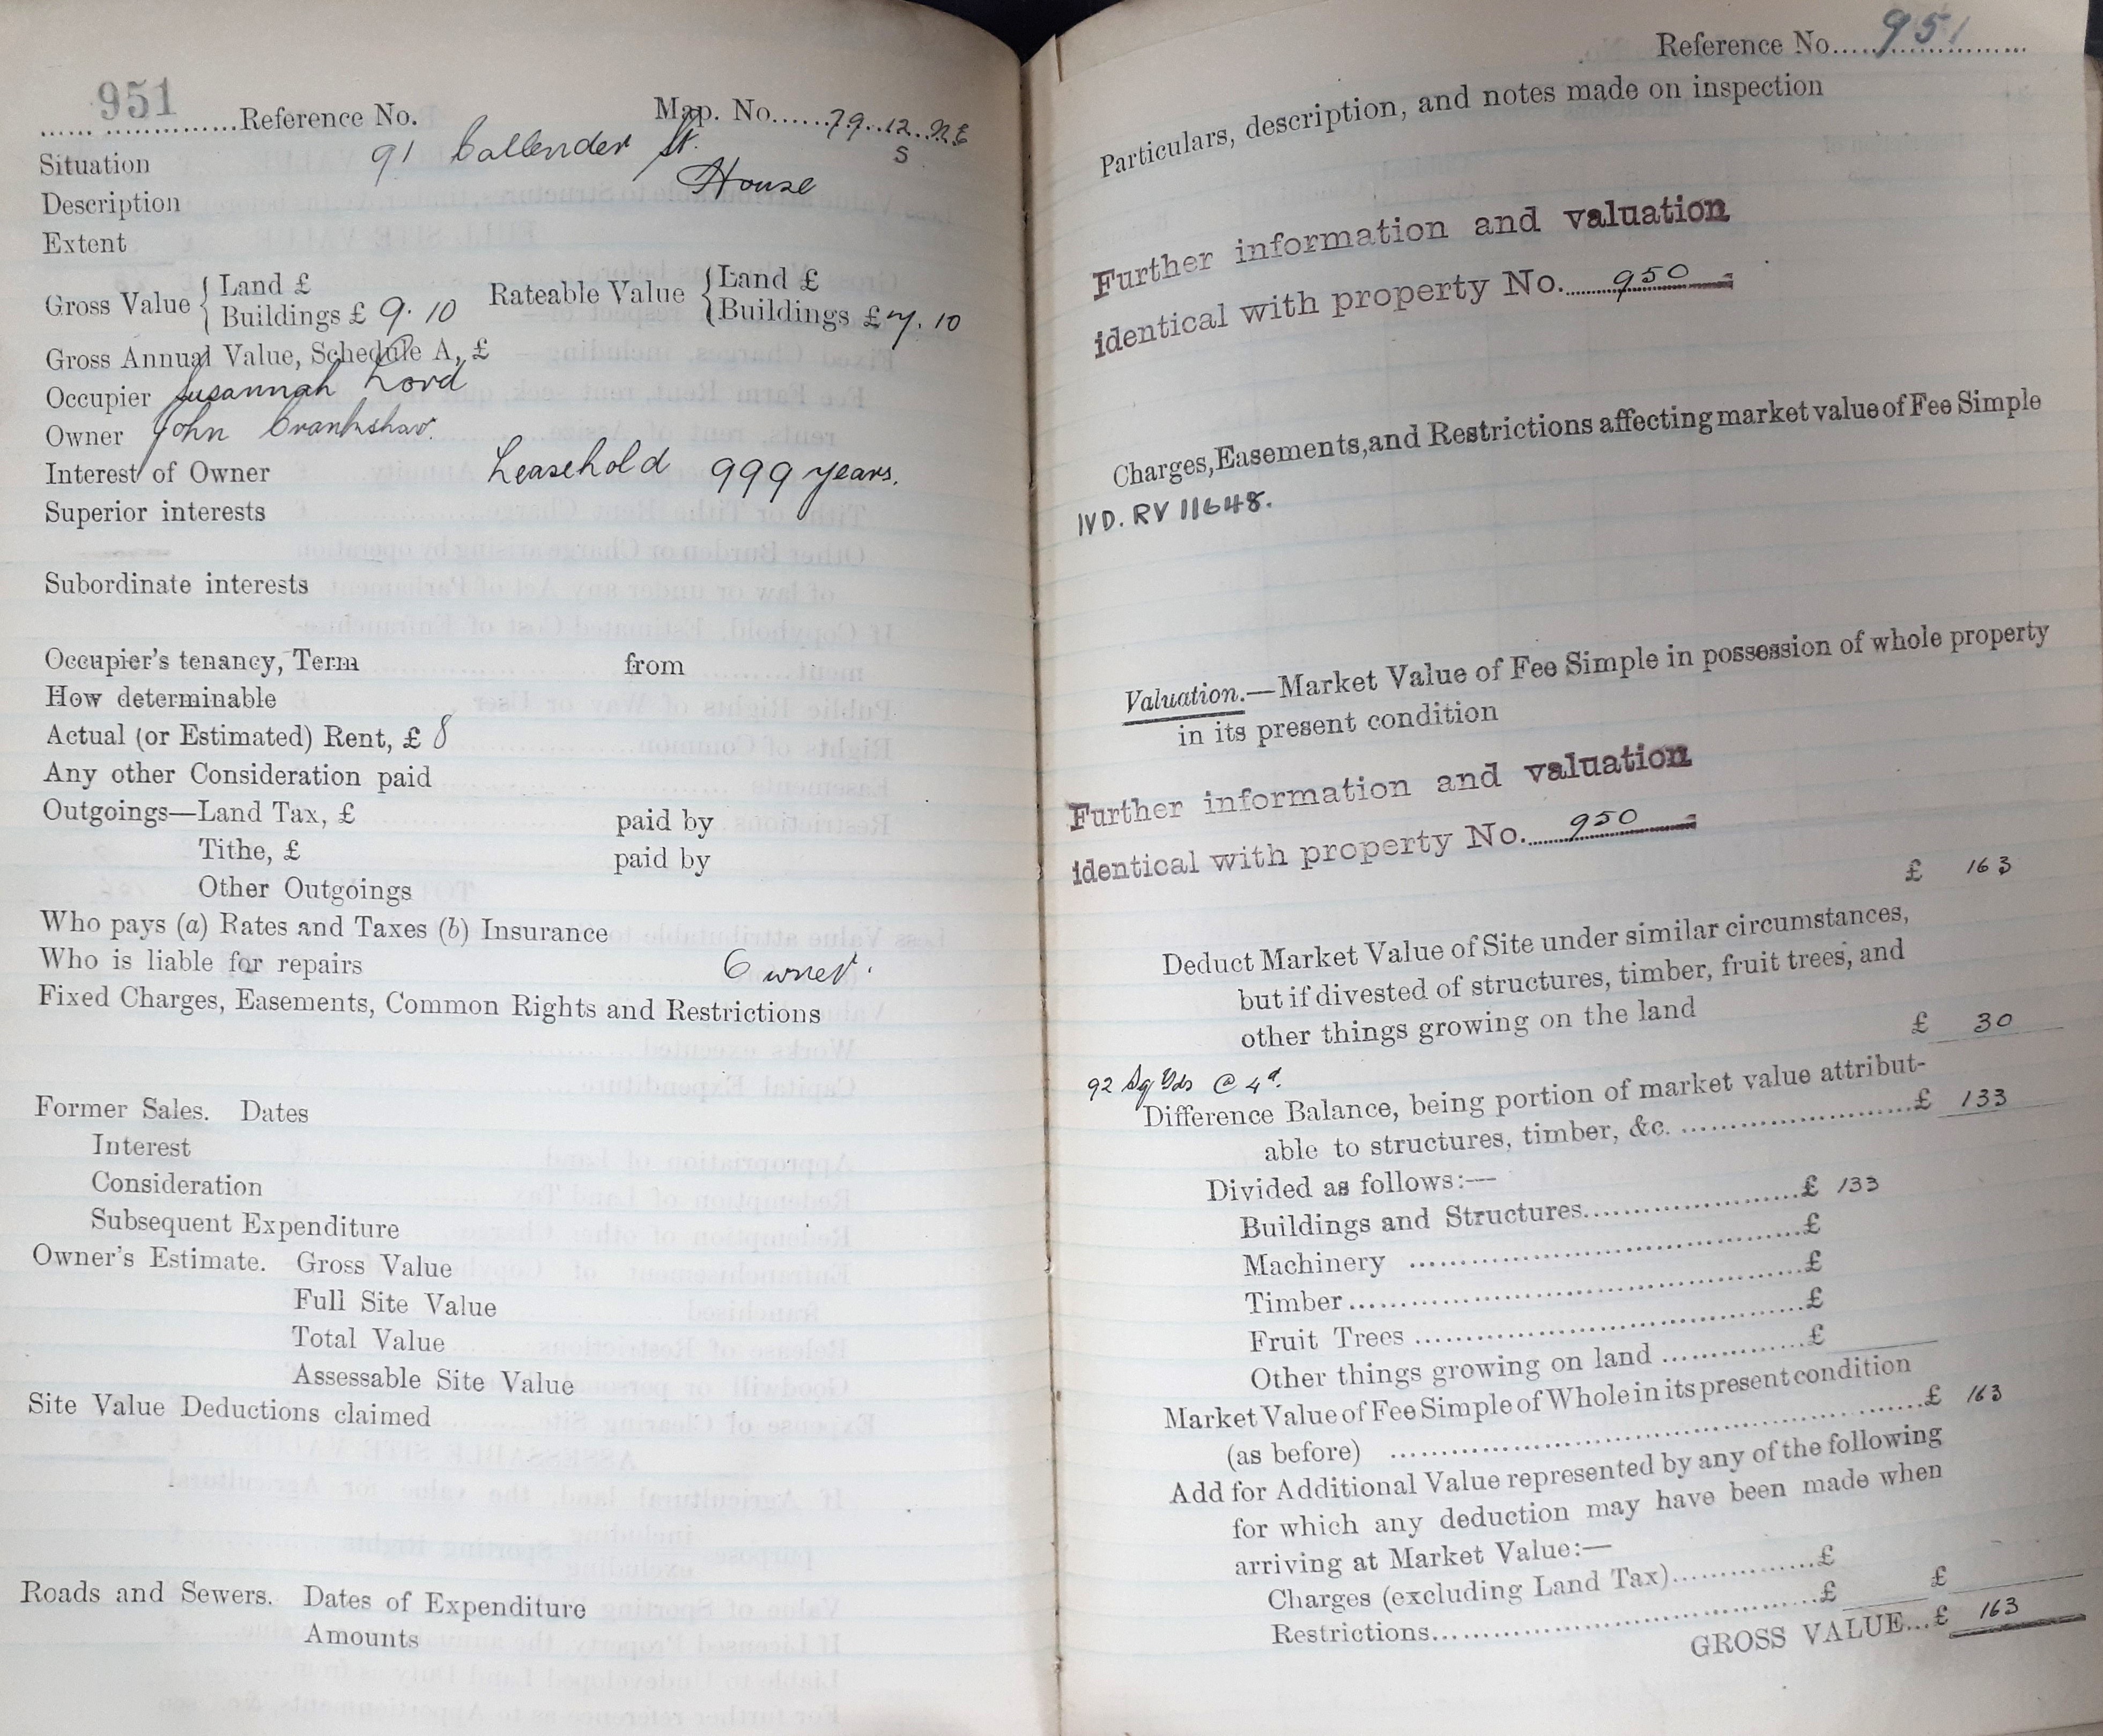 951
Reference No. Map. No. 79.12.N.E
S
Situation 91 Callender St.
Description House
Extent
Gross Value { Land £ Rateable Value { Land £
Buildings £ 9.10 Buildings £ 7.10
Gross Annual Value, Schedule A, £
Occupier Susannah Lord
Owner John Crankshaw.
Interest of Owner Leasehold 999 years.
Superior interests
Subordinate interests
Occupier's tenancy, Term from
How determinable
Actual (or Estimated) Rent, £ 8
Any other Consideration paid
Outgoings—Land Tax, £ paid by
Tithe, £ paid by
Other Outgoings
Who pays (a) Rates and Taxes (b) Insurance
Who is liable for repairs Owner.
Fixed Charges, Easements, Common Rights and Restrictions
Former Sales. Dates
Interest
Consideration
Subsequent Expenditure
Owner's Estimate. Gross Value
Full Site Value
Total Value
Assessable Site Value
Site Value Deductions claimed
Roads and Sewers. Dates of Expenditure
Amounts
Reference No. 951
Particulars, description, and notes made on inspection
Further information and valuation
identical with property No. 950
Charges, Easements, and Restrictions affecting market value of Fee Simple
IVD. RV 11648.
Valuation.—Market Value of Fee Simple in possession of whole property
in its present condition
Further information and valuation
identical with property No. 950
£ 163
Deduct Market Value of Site under similar circumstances,
but if divested of structures, timber, fruit trees, and
other things growing on the land
£ 30
92 Sq Yds @ 4d.
Difference Balance, being portion of market value attribut-
able to structures, timber, &c. £ 133
Divided as follows:—
Buildings and Structures £ 133
Machinery £
Timber £
Fruit Trees £
Other things growing on land £
Market Value of Fee Simple of Whole in its present condition
(as before) £ 163
Add for Additional Value represented by any of the following
for which any deduction may have been made when
arriving at Market Value:—
Charges (excluding Land Tax) £
Restrictions £ £
GROSS VALUE £ 163